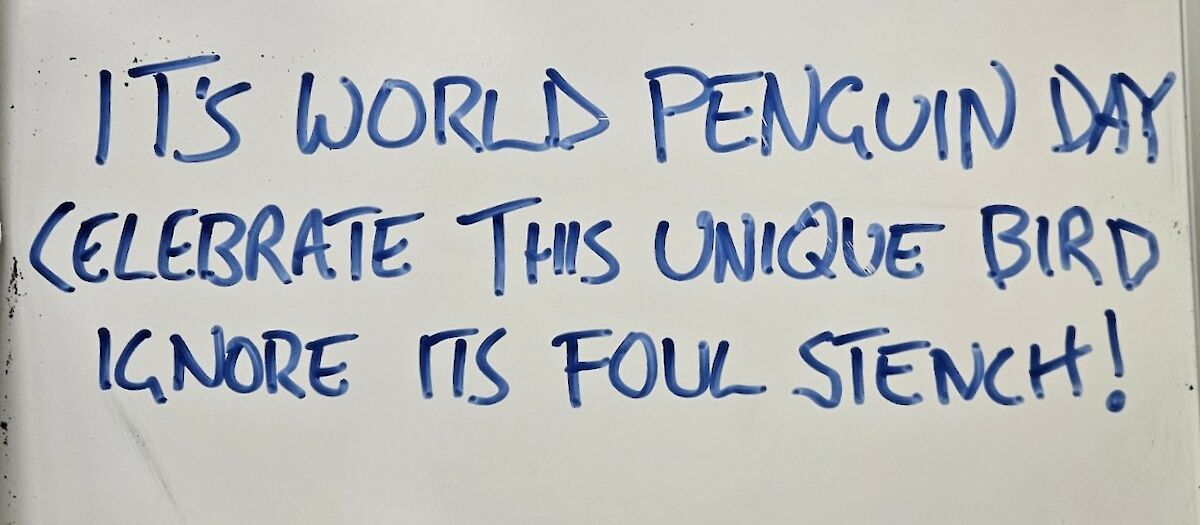 IT'S WORLD PENGUIN DAY
CELEBRATE THIS UNIQUE BIRD
IGNORE ITS FOUL STENCH!